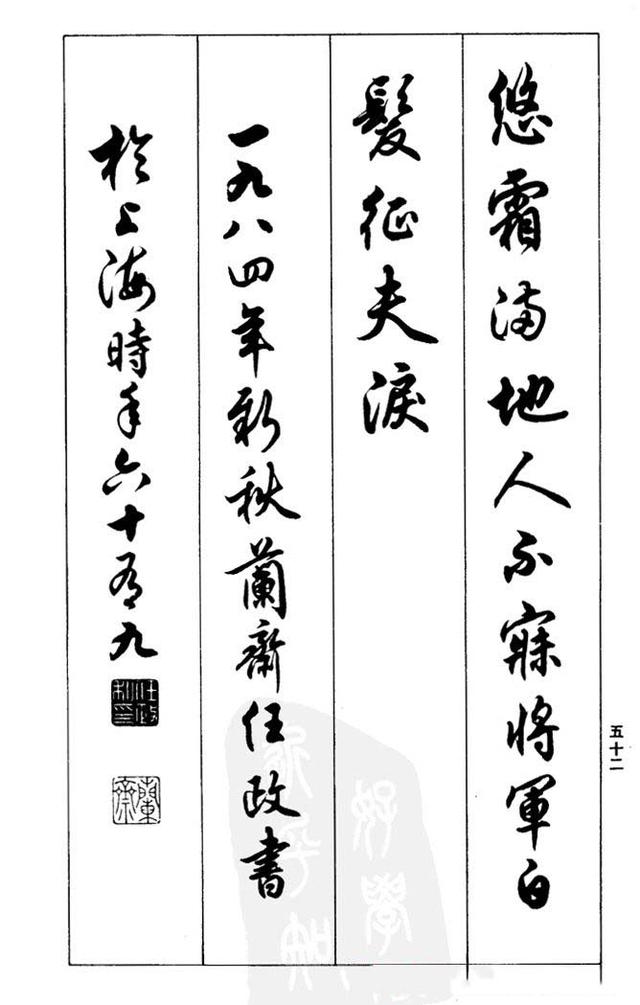 悠霜满地人不寐將軍白
髮征夫淚
一九八四年新秋蘭齋任政書
於上海時年六十有九
五十二
蘭齋
好學